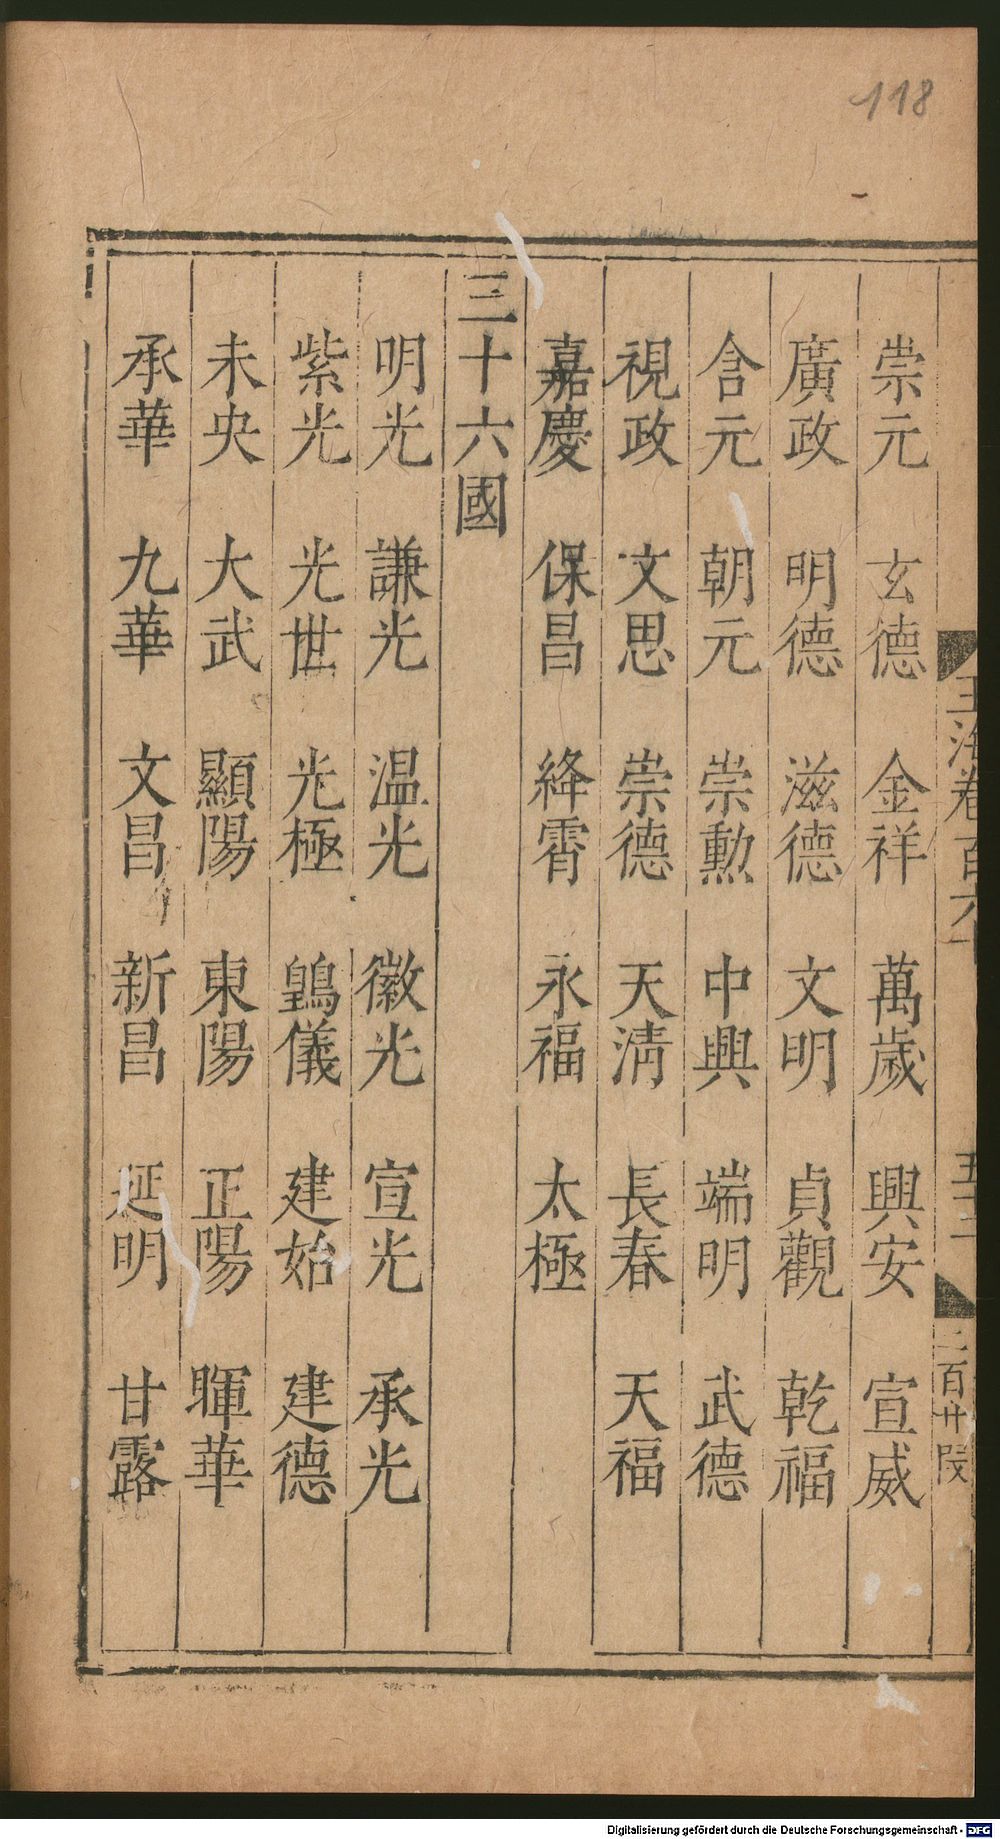 118
崇元 玄德 金祥 萬歲 興安 宣威
廣政 明德 滋德 文明 貞觀 乾福
含元 朝元 崇勳 中興 端明 武德
視政 文思 崇德 天清 長春 天福
嘉慶 保昌 絳霄 永福 太極
三十六國
明光 謙光 温光 徽光 宣光 承光
紫光 光世 光極 鶂儀 建始 建德
未央 大武 顯陽 東陽 正陽 暉華
承華 九華 文昌 新昌 延明 甘露
Digitalisierung gefördert durch die Deutsche Forschungsgemeinschaft - DFG